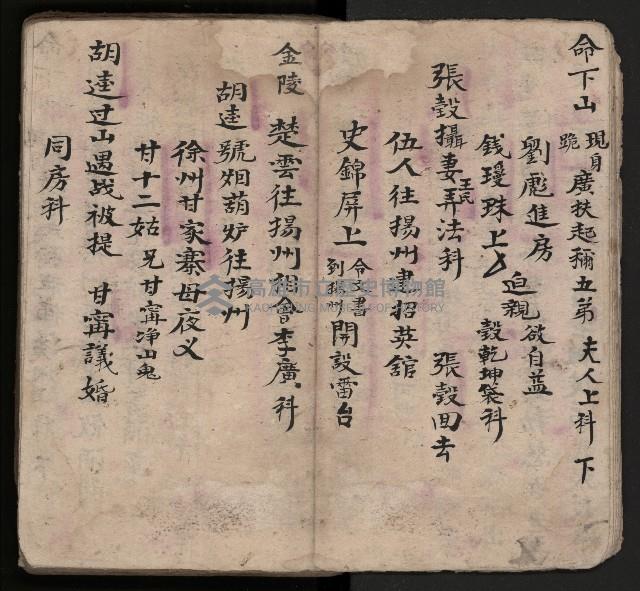 命下山 現身跪 廣扶起稱五弟 夫人上科 下
劉彪進房 迫親欲自盡
錢瑷珠上 彀乾坤袋科
張彀攝妻王氏弄法科 張彀回去
伍人往揚州書招英舘
史錦屏上 令文書到揚州 開設雷台
金陵 楚雲往揚州 會李廣科
胡逵號烟葫炉往揚州
徐州甘家寨母夜义
甘十二姑 兄甘寗净山鬼
胡逵过山遇战被提 甘寗議婚
同房科
高雄市立歷史博物館
KAOHSIUNG MUSEUM OF HISTORY